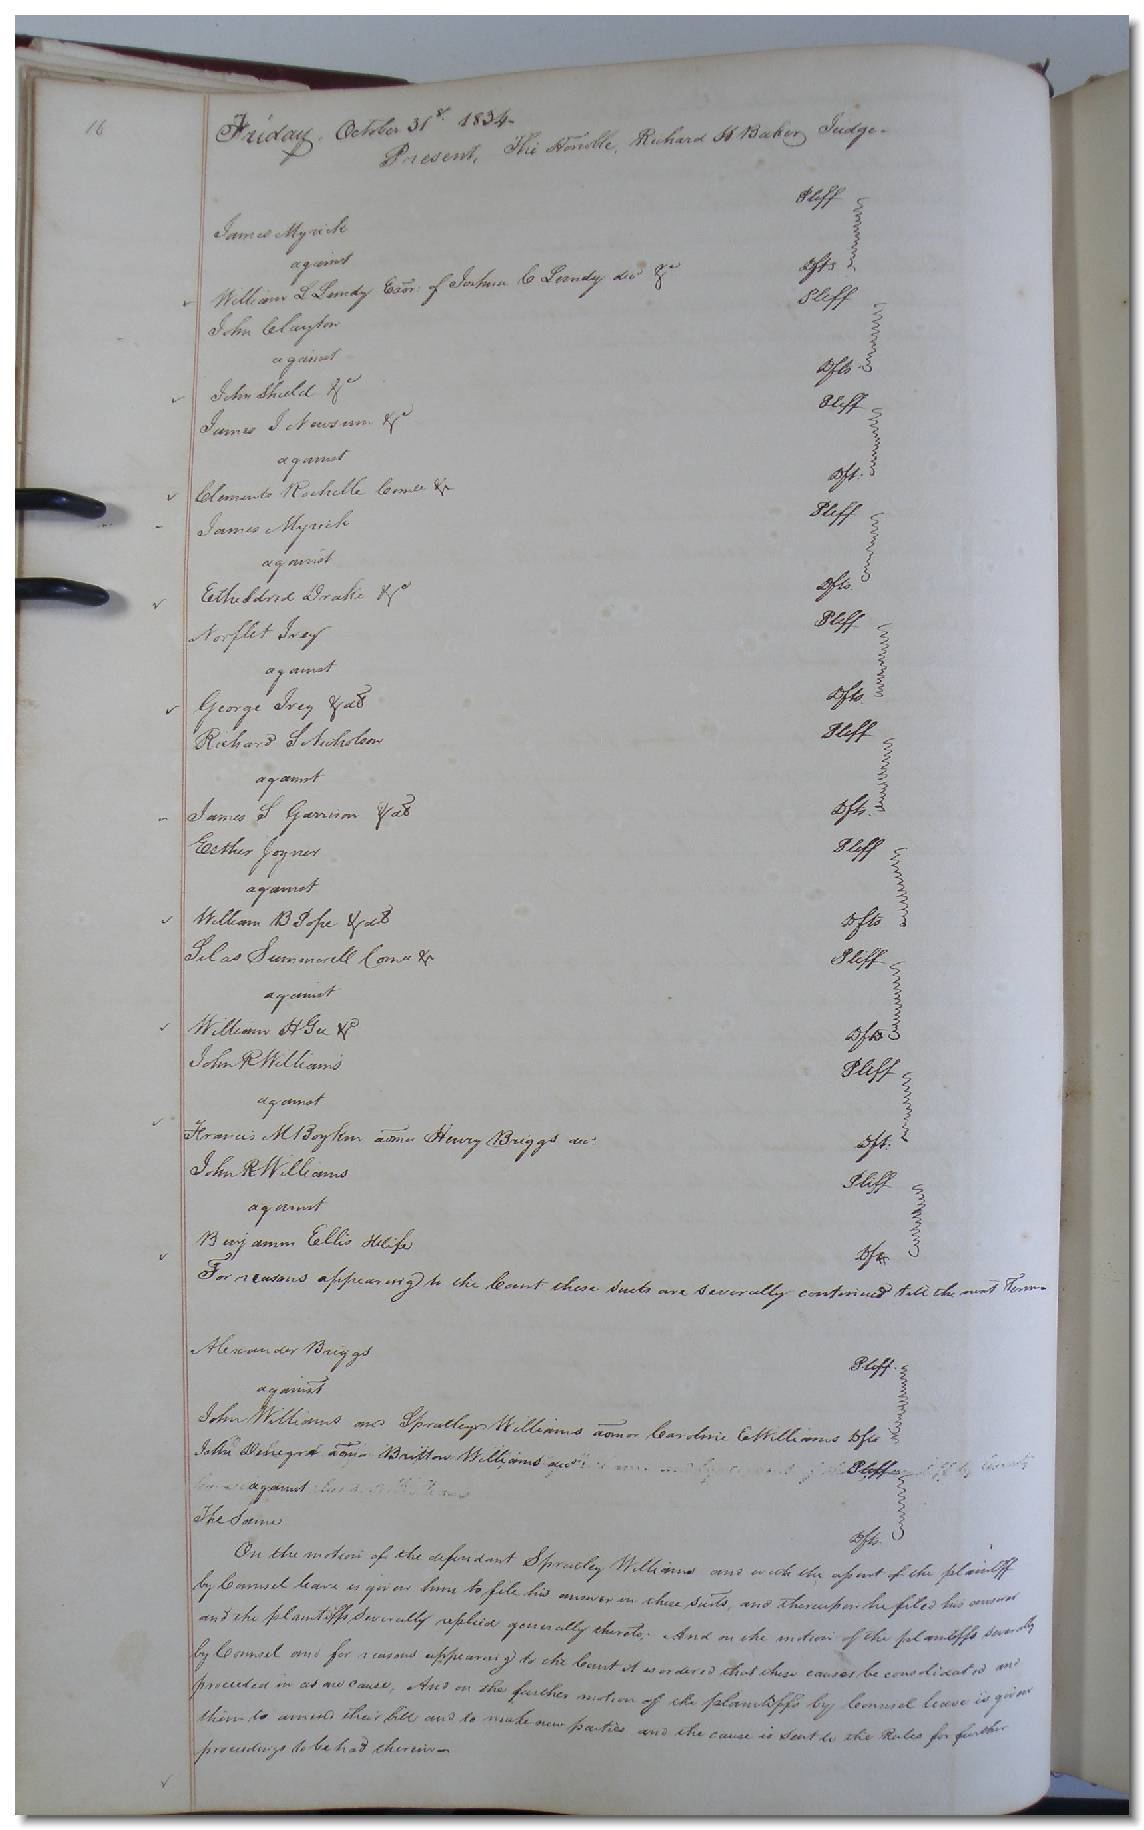 16
Friday. October 31st 1834.
Present, The Honble, Richard H Baker Judge.
Pleff
James Myrick
against
William L Lundy Exor. of Joshua C Lundy decd &c Dfts
Pleff
John Clayton
against
John Shield &c Dfts
Pleff
James J Newsum &c
against
Clements Rochelle Comee &c Dft.
James Myrick Pleff
against
Etheldred Drake &c Dfts
Norflet Ivey Pleff
against
George Ivey & als Dfts
Richard S Nicholson Pleff
against
James S Garrison & als Dfts.
Esther Joyner Pleff
against
William B Pope & als Dfts
Silas Summerell Comee &c Pleff
against
William H Gee &c Dfts
John R Williams Pleff
against
Francis M Boykin admr Henry Briggs decd Dft.
John R Williams Pleff
against
Benjamin Ellis & wife Dfts
For reasons appearing to the Court these suits are severally continued till the next Term.
Alexander Briggs Pleff.
against
John Williams and Spratley Williams admor Caroline E Williams Dfts
John admor Britton Williams decd Pleff
against
The Same Dfts.
On the motion of the defendant Spratley Williams and with the assent of the plaintiff
by Counsel leave is given him to file his answer in these suits, and thereupon he filed his answer
and the plaintiffs severally replied generally thereto. And on the motion of the plaintiffs severally
by Counsel and for reasons appearing to the Court it is ordered that these causes be consolidated and
proceeded in as one cause, And on the further motion of the plaintiffs by Counsel leave is given
them to amend their bill and to make new parties and the cause is sent to the Rules for further
proceedings to be had therein.